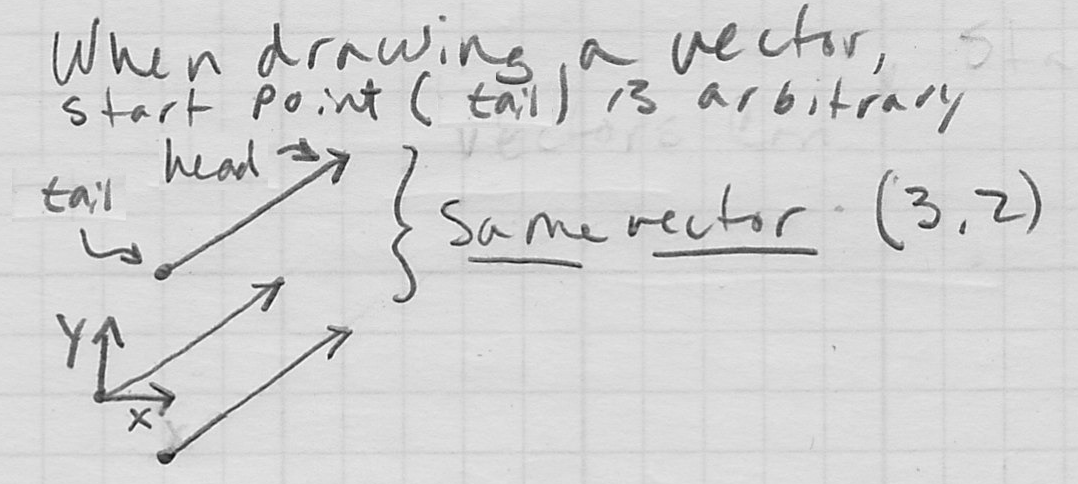 When drawing a vector,
start point (tail) is arbitrary
head
tail
same vector (3,2)
Y
X